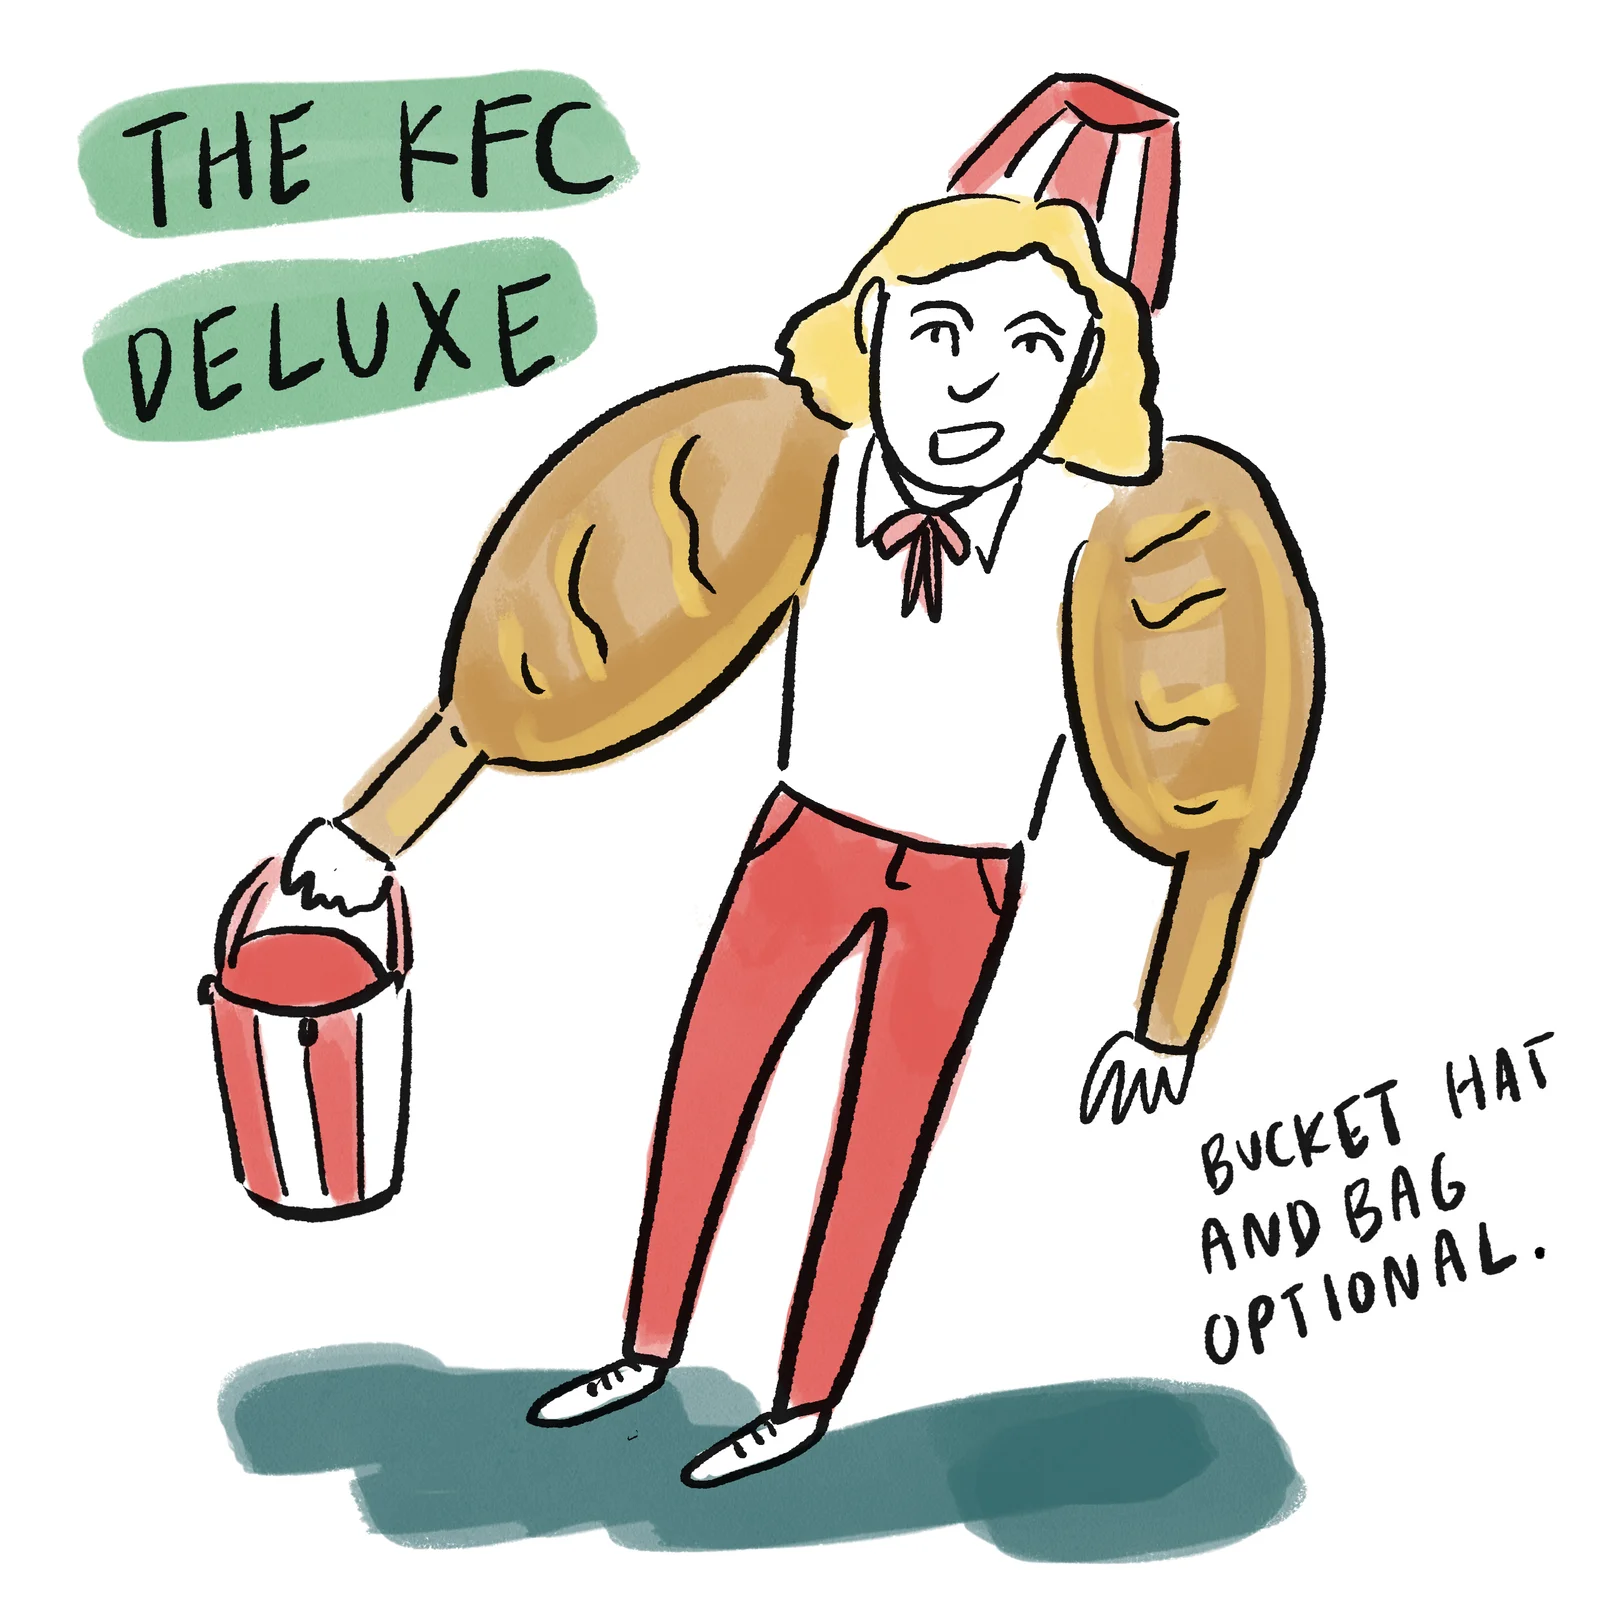 THE KFC
DELUXE
BUCKET HAT
AND BAG
OPTIONAL.